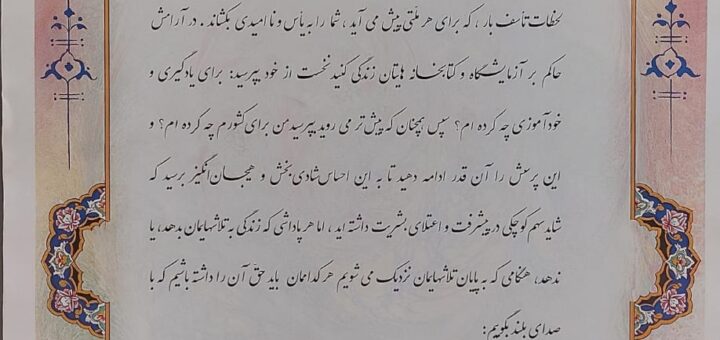 لحظات تأسف بار ، که برای هر ملّتی پیش می آید ، شما را به یأس و ناامیدی بکشاند . در آرامش
حاکم بر آزمایشگاه و کتابخانه هایتان زندگی کنید نخست از خود بپرسید: برای یادگیری و
خودآموزی چه کرده ام؟ سپس همچنان که پیش تر می روید بپرسید من برای کشورم چه کرده ام؟ و
این پرسش را آن قدر ادامه دهید تا به این احساس شادی بخش و هیجان انگیز برسید که
شاید سهم کوچکی در پیشرفت و اعتلای بشریت داشته اید ، اما هر پاداشی که زندگی به تلاشهایمان بدهد، یا
ندهد، هنگامی که به پایان تلاشهایمان نزدیک می شویم هر کداممان باید حقّ آن را داشته باشیم که با
صدای بلند بگویم: